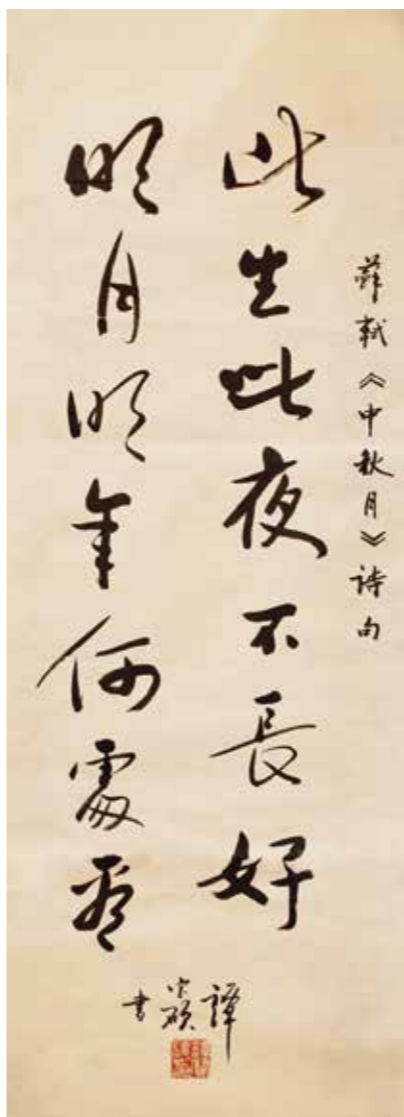 蘇軾《中秋月》诗句
此生此夜不長好
明月明年何處看
譚
書